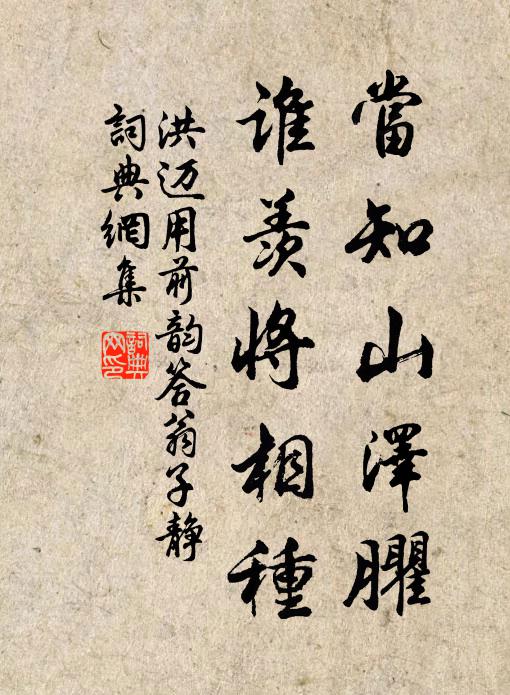 當知山澤臞
誰羨將相種
洪迈用前韵答翁子静
詞典網集
詞典网印